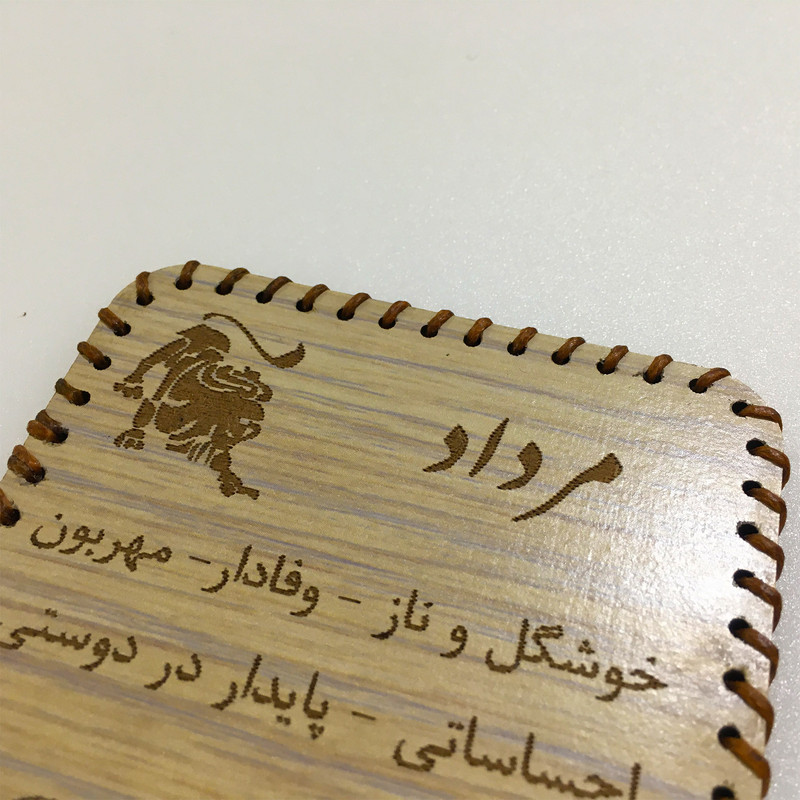 مرداد
خوشگل و ناز - وفادار- مهربون
احساساتی - پایدار در دوستی